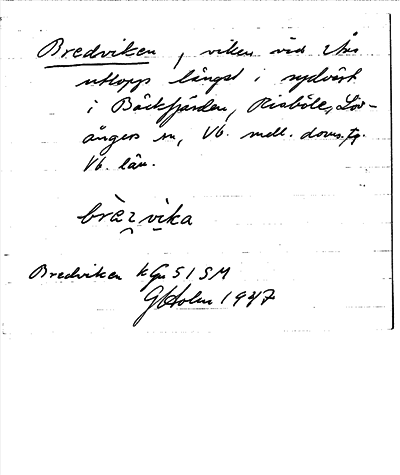 Bredviken, viken vid Åns
utlopp längst i sydväst
i Bäckfjärden, Risböle, Löv-
ångers sn, Vb. mell. doms.
Vb. län.
brèzvika
Bredviken kGn 51 SM
G Holm 1947